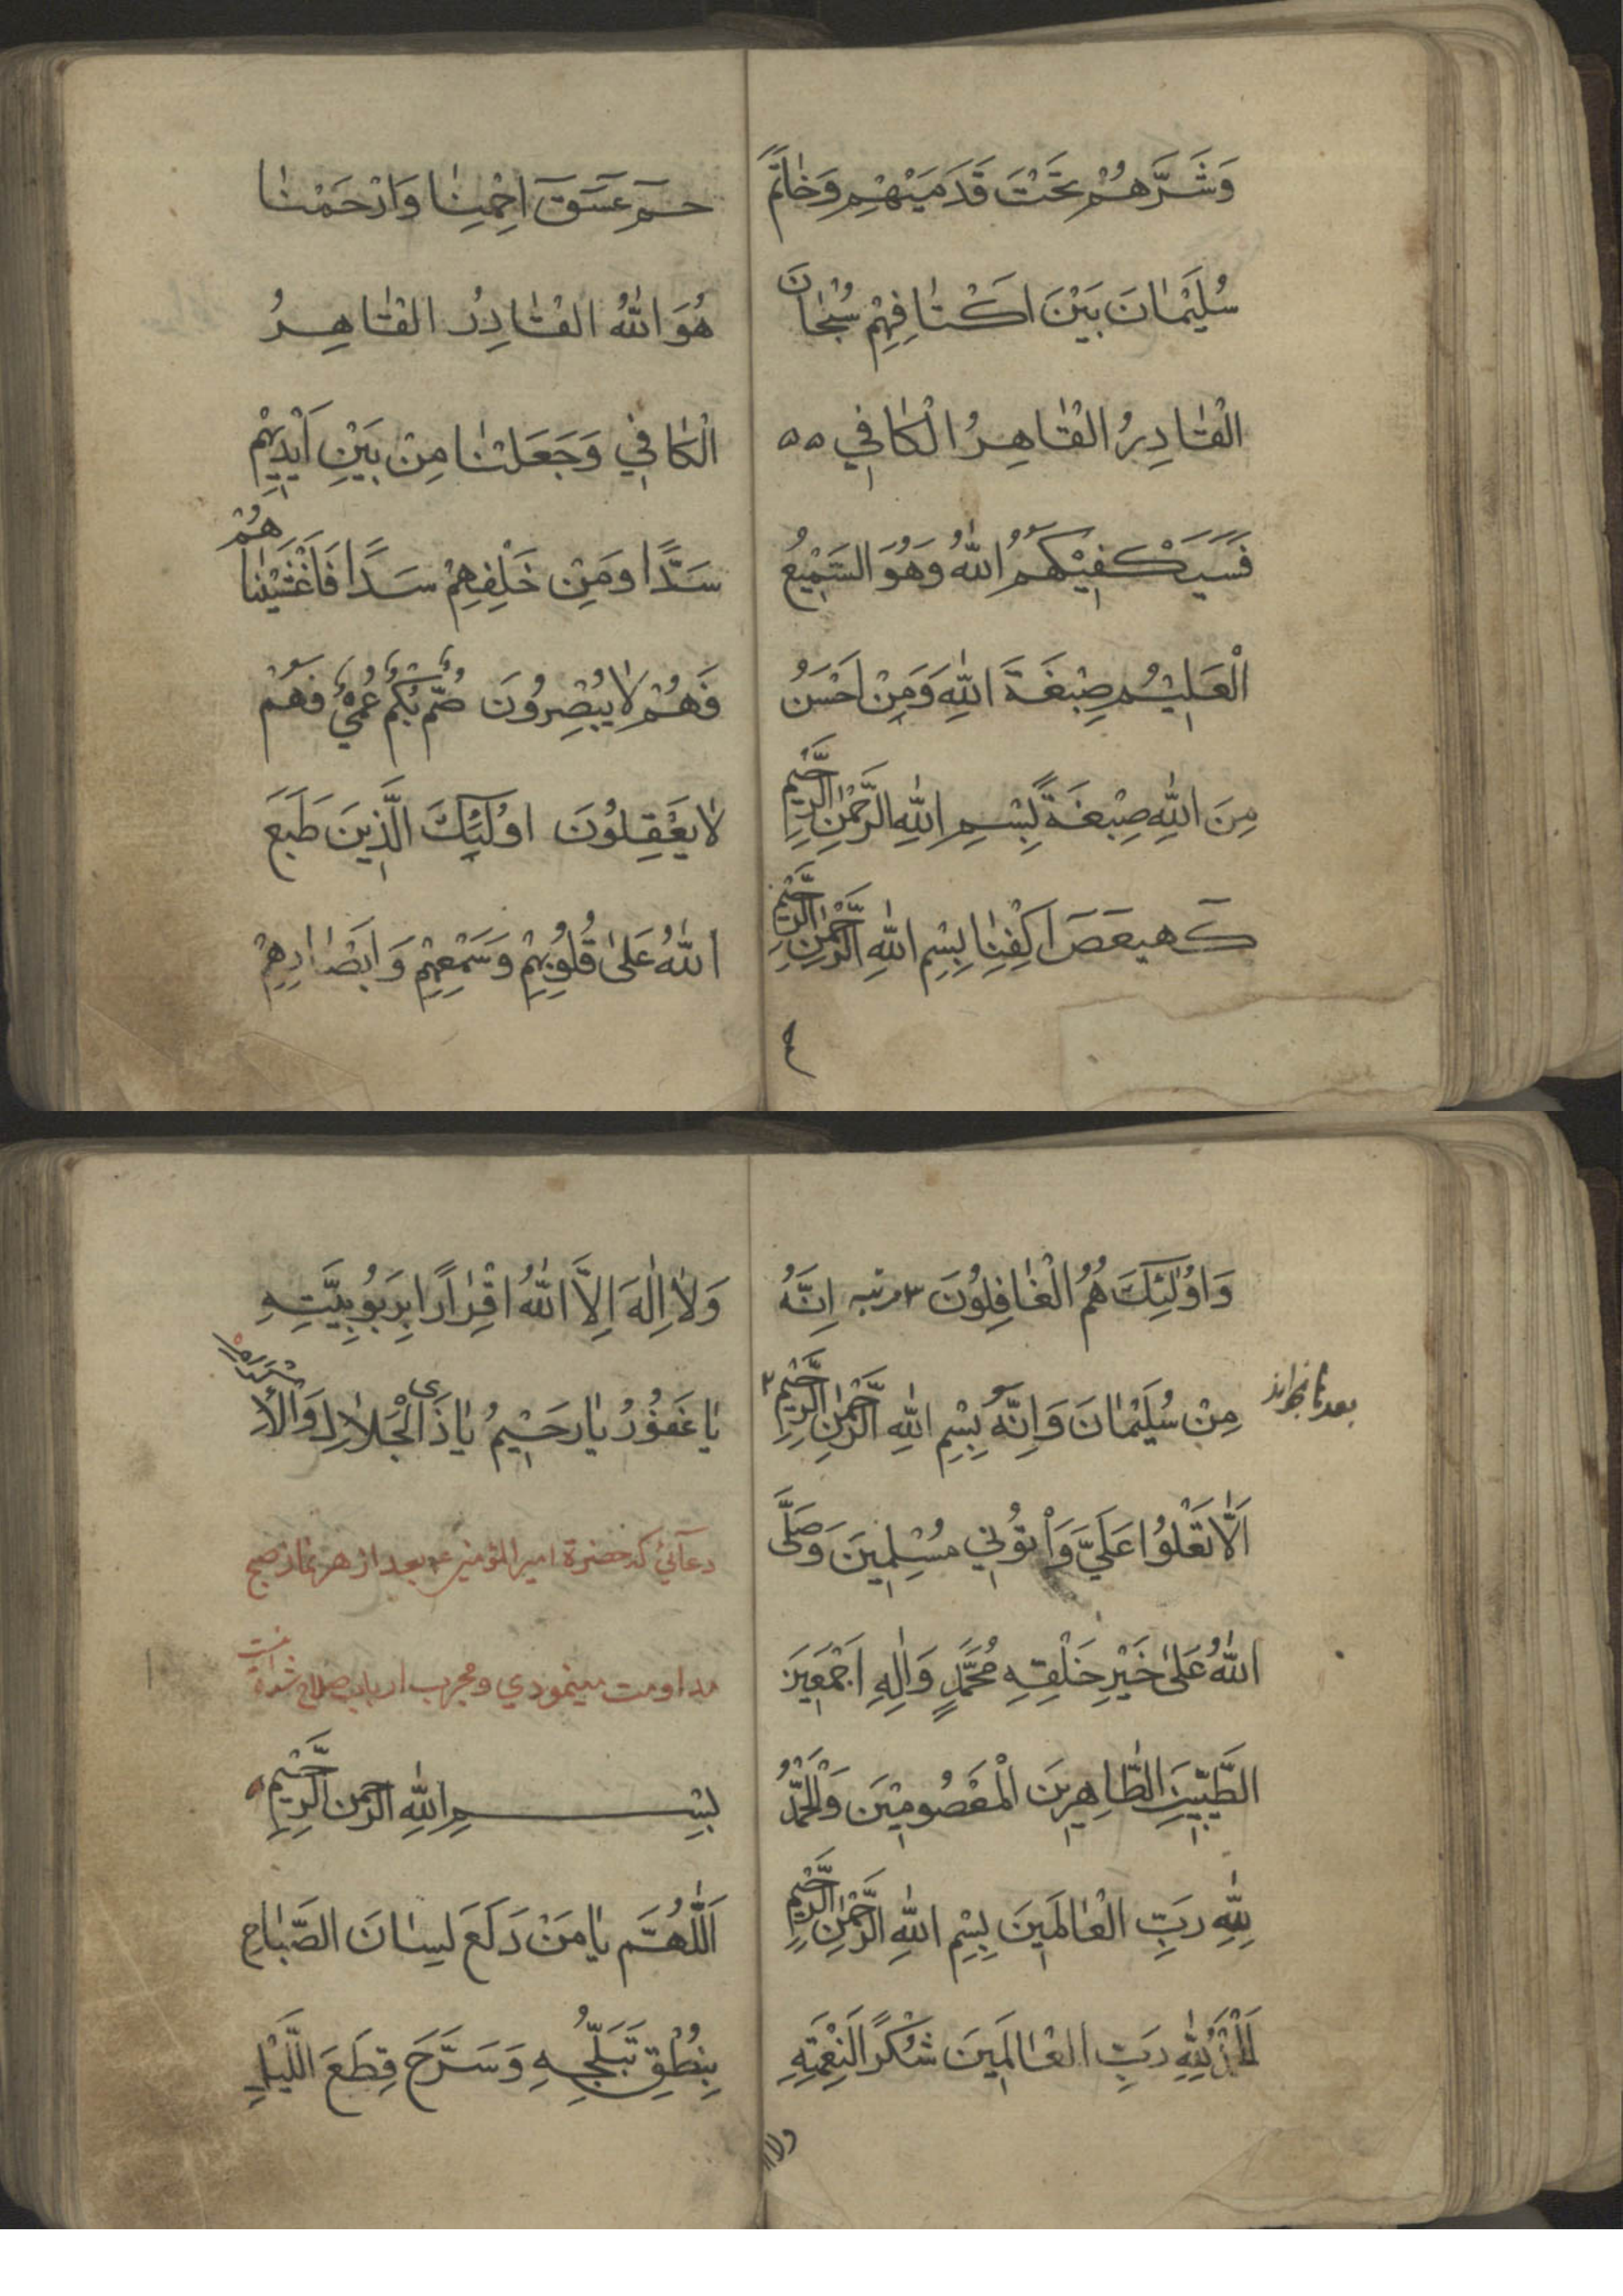 وَشَرَّهُمْ تَحْتَ قَدَمَيْهِمْ وَخَاتَمَ
سُلَيْمَانَ بَيْنَ اَكْتَافِهِمْ سُبْحَانَ
الْقَادِرُ الْقَاهِرُ الْكَافِي ۵۵
فَسَيَكْفِيْكَهُمُ اللّٰهُ وَهُوَ السَّمِيْعُ
الْعَلِيْمُ صِبْغَةَ اللّٰهِ وَمَنْ اَحْسَنُ
مِنَ اللّٰهِ صِبْغَةً بِسْمِ اللّٰهِ الرَّحْمٰنِ الرَّحِيْمِ
كٓهيعٓصٓ اكْفِنَا بِسْمِ اللّٰهِ الرَّحْمٰنِ الرَّحِيْمِ
حٓمٓ عٓسٓقٓ اِحْمِنَا وَارْحَمْنَا
هُوَ اللّٰهُ الْقَادِرُ الْقَاهِرُ
الْكَافِي وَجَعَلْنَا مِنْ بَيْنِ اَيْدِيْهِمْ
سَدًّا وَمِنْ خَلْفِهِمْ سَدًّا فَاَغْشَيْنَاهُمْ
فَهُمْ لَا يُبْصِرُونَ صُمٌّ بُكْمٌ عُمْيٌ فَهُمْ
لَا يَعْقِلُونَ اُولٰئِكَ الَّذِينَ طَبَعَ
اللّٰهُ عَلىٰ قُلُوْبِهِمْ وَسَمْعِهِمْ وَاَبْصَارِهِمْ
وَاُولٰئِكَ هُمُ الْغَافِلُونَ ٣ مرتبه اِنَّهُ
مِنْ سُلَيْمَانَ وَاِنَّهُ بِسْمِ اللّٰهِ الرَّحْمٰنِ الرَّحِيْمِ ٣
اَلَّا تَعْلُوا عَلَيَّ وَأْتُوْنِي مُسْلِمِيْنَ وَصَلَّى
اللّٰهُ عَلىٰ خَيْرِ خَلْقِهِ مُحَمَّدٍ وَاٰلِهِ اَجْمَعِيْنَ
الطَّيِّبِيْنَ الطَّاهِرِيْنَ الْمَعْصُومِيْنَ وَالْحَمْدُ
لِلّٰهِ رَبِّ الْعَالَمِيْنَ بِسْمِ اللّٰهِ الرَّحْمٰنِ الرَّحِيْمِ
اَلْحَمْدُ لِلّٰهِ رَبِّ الْعَالَمِيْنَ شُكْرًا لِنِعْمَتِهِ
ولا
وَلَا اِلٰهَ اِلَّا اللّٰهُ اِقْرَارًا بِرَبُوبِيَّتِهِ
يَا غَفُوْرُ يَا رَحِيْمُ يَا ذَى الْجَلَالِ وَالْاِكْرَام
دعائی که حضرة امير المؤمنين ع بعد از هر نماز صبح
مداومت مینمودي ومجرب ارباب صلاح شده است
بِسْمِ اللّٰهِ الرَّحْمٰنِ الرَّحِيْمِ
اَللّٰهُمَّ يَا مَنْ دَلَعَ لِسَانَ الصَّبَاحِ
بِنُطْقِ تَبَلُّجِهِ وَسَرَّحَ قِطَعَ اللَّيْلِ